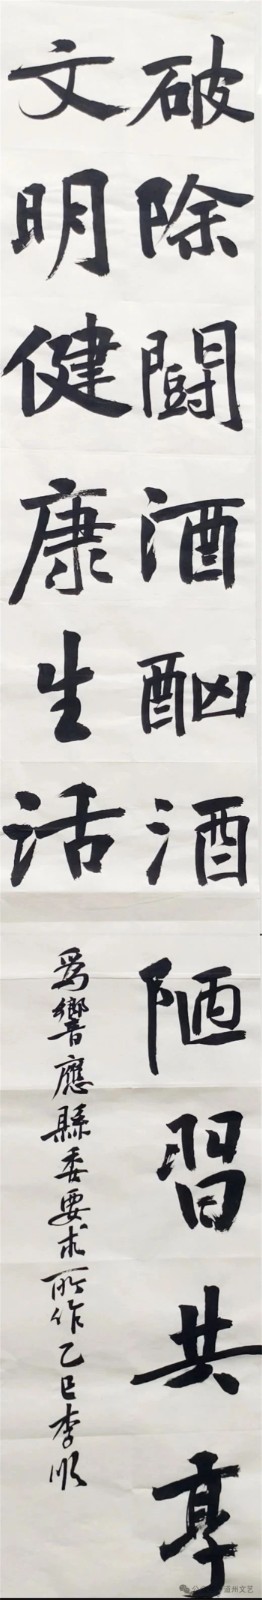 破除鬪酒酗酒陋習共享
文明健康生活
爲響應縣委要求所作乙巳李順
公众号·道州文艺